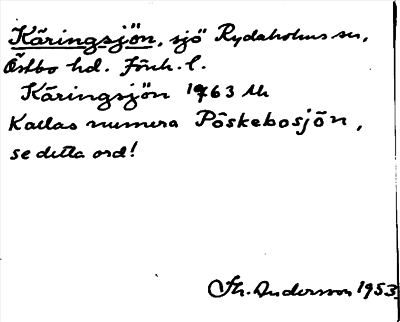 Käringsjön, sjö Rydaholms sn,
Östbo hd. Jönk. l.
Käringsjön 1763 lk
Kallas numera Påskebosjön,
se detta ord!
Th. Andersson 1953.